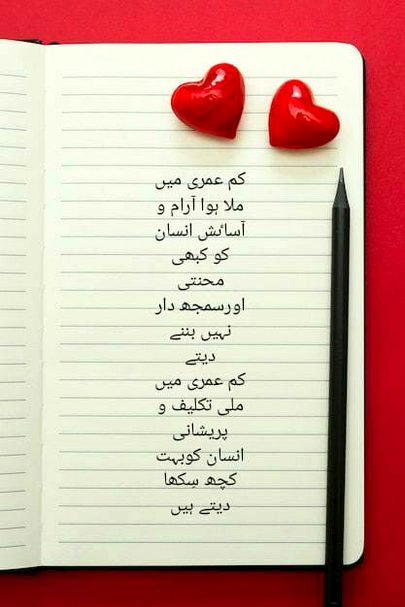 کم عمری میں
ملا ہوا آرام و
آسائش انسان
کو کبھی
محنتی
اورسمجھ دار
نہیں بننے
دیتے
کم عمری میں
ملی تکلیف و
پریشانی
انسان کوبہت
کچھ سِکھا
دیتے ہیں